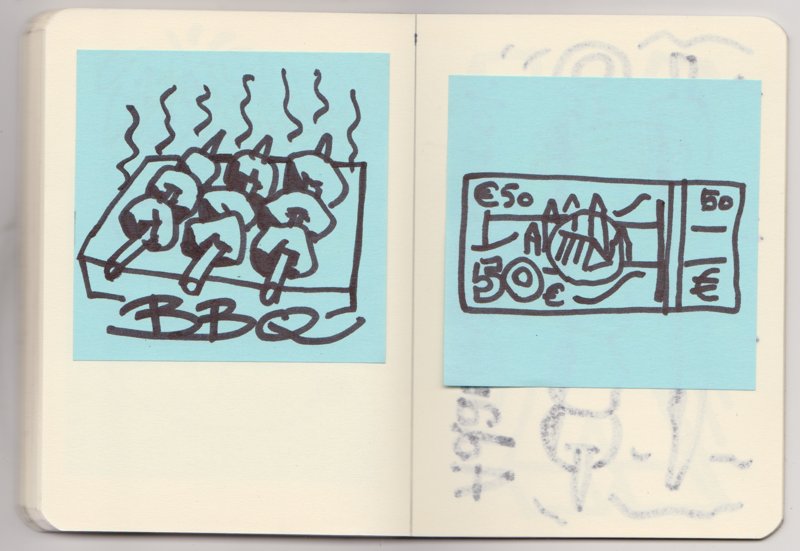 BBQ
€50
50
50€
€